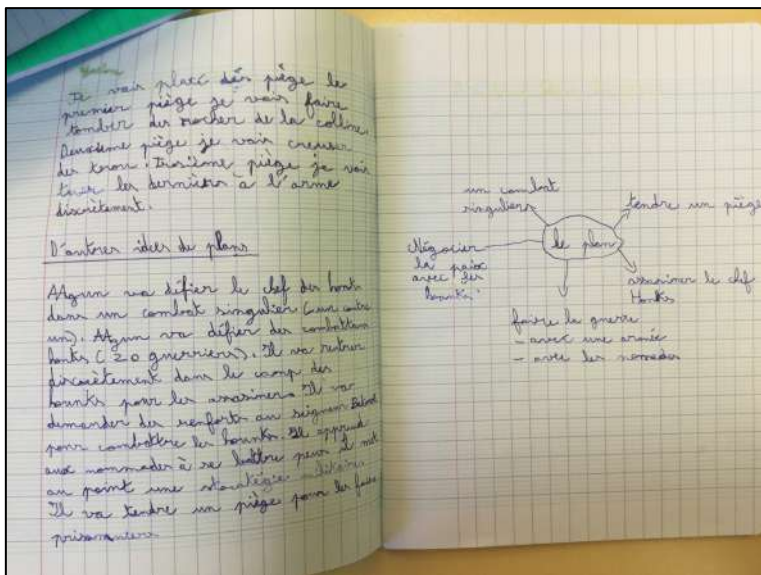 Je vais placé des piège le
premier piège je vais faire
tomber des rocher de la colline
Deuxième piège je vais creuser
des trou. Troisième piège je vais
tuer les derniers à l'arme
discrètement.
D'autres idées de plans
va défier le chef des honks
dans un combat singulier (un contre
un). va défier des combattans
honks (20 guerriers). Il va rentrer
discrètement dans le camp des
hounks pour les assasiner. Il va
demander des renforts au seigneur
pour combattre les hounks. Il apprend
aux nommades à se battre puis il met
au point une stratégie militaire
Il va tendre un piège pour les faire
prisonniers
un combat
singuliers
tendre un piège
le plan
Négocier
la paix
avec les
hounks
assasiner le chef
Honks
faire la guerre
- avec une armée
- avec les nomades